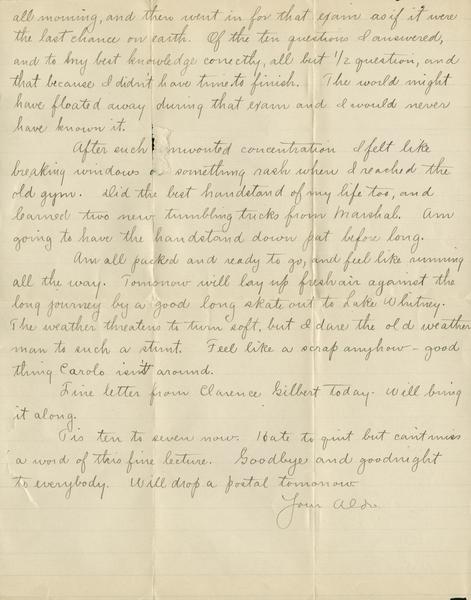 all morning, and then went in for that exam as if it were
the last chance on earth. Of the ten questions I answered,
and to my best knowledge correctly, all but 1/2 question, and
that because I didn't have time to finish. The world might
have floated away during that exam and I would never
have known it.
After such unwonted concentration I felt like
breaking windows or something rash when I reached the
old gym. Did the best handstand of my life too, and
learned two new tumbling tricks from Marshal. Am
going to have the handstand down pat before long.
Am all packed and ready to go, and feel like running
all the way. Tomorrow will lay up fresh air against the
long journey by a good long skate out to Lake Whitney.
The weather threatens to turn soft, but I dare the old weather
man to such a stunt. Feel like a scrap anyhow - good
thing Carolo isn't around.
Fine letter from Clarence Gilbert today. Will bring
it along.
Tis ten to seven now. Hate to quit but can't miss
a word of this fine lecture. Goodbye and goodnight
to everybody. Will drop a postal tomorrow
Your